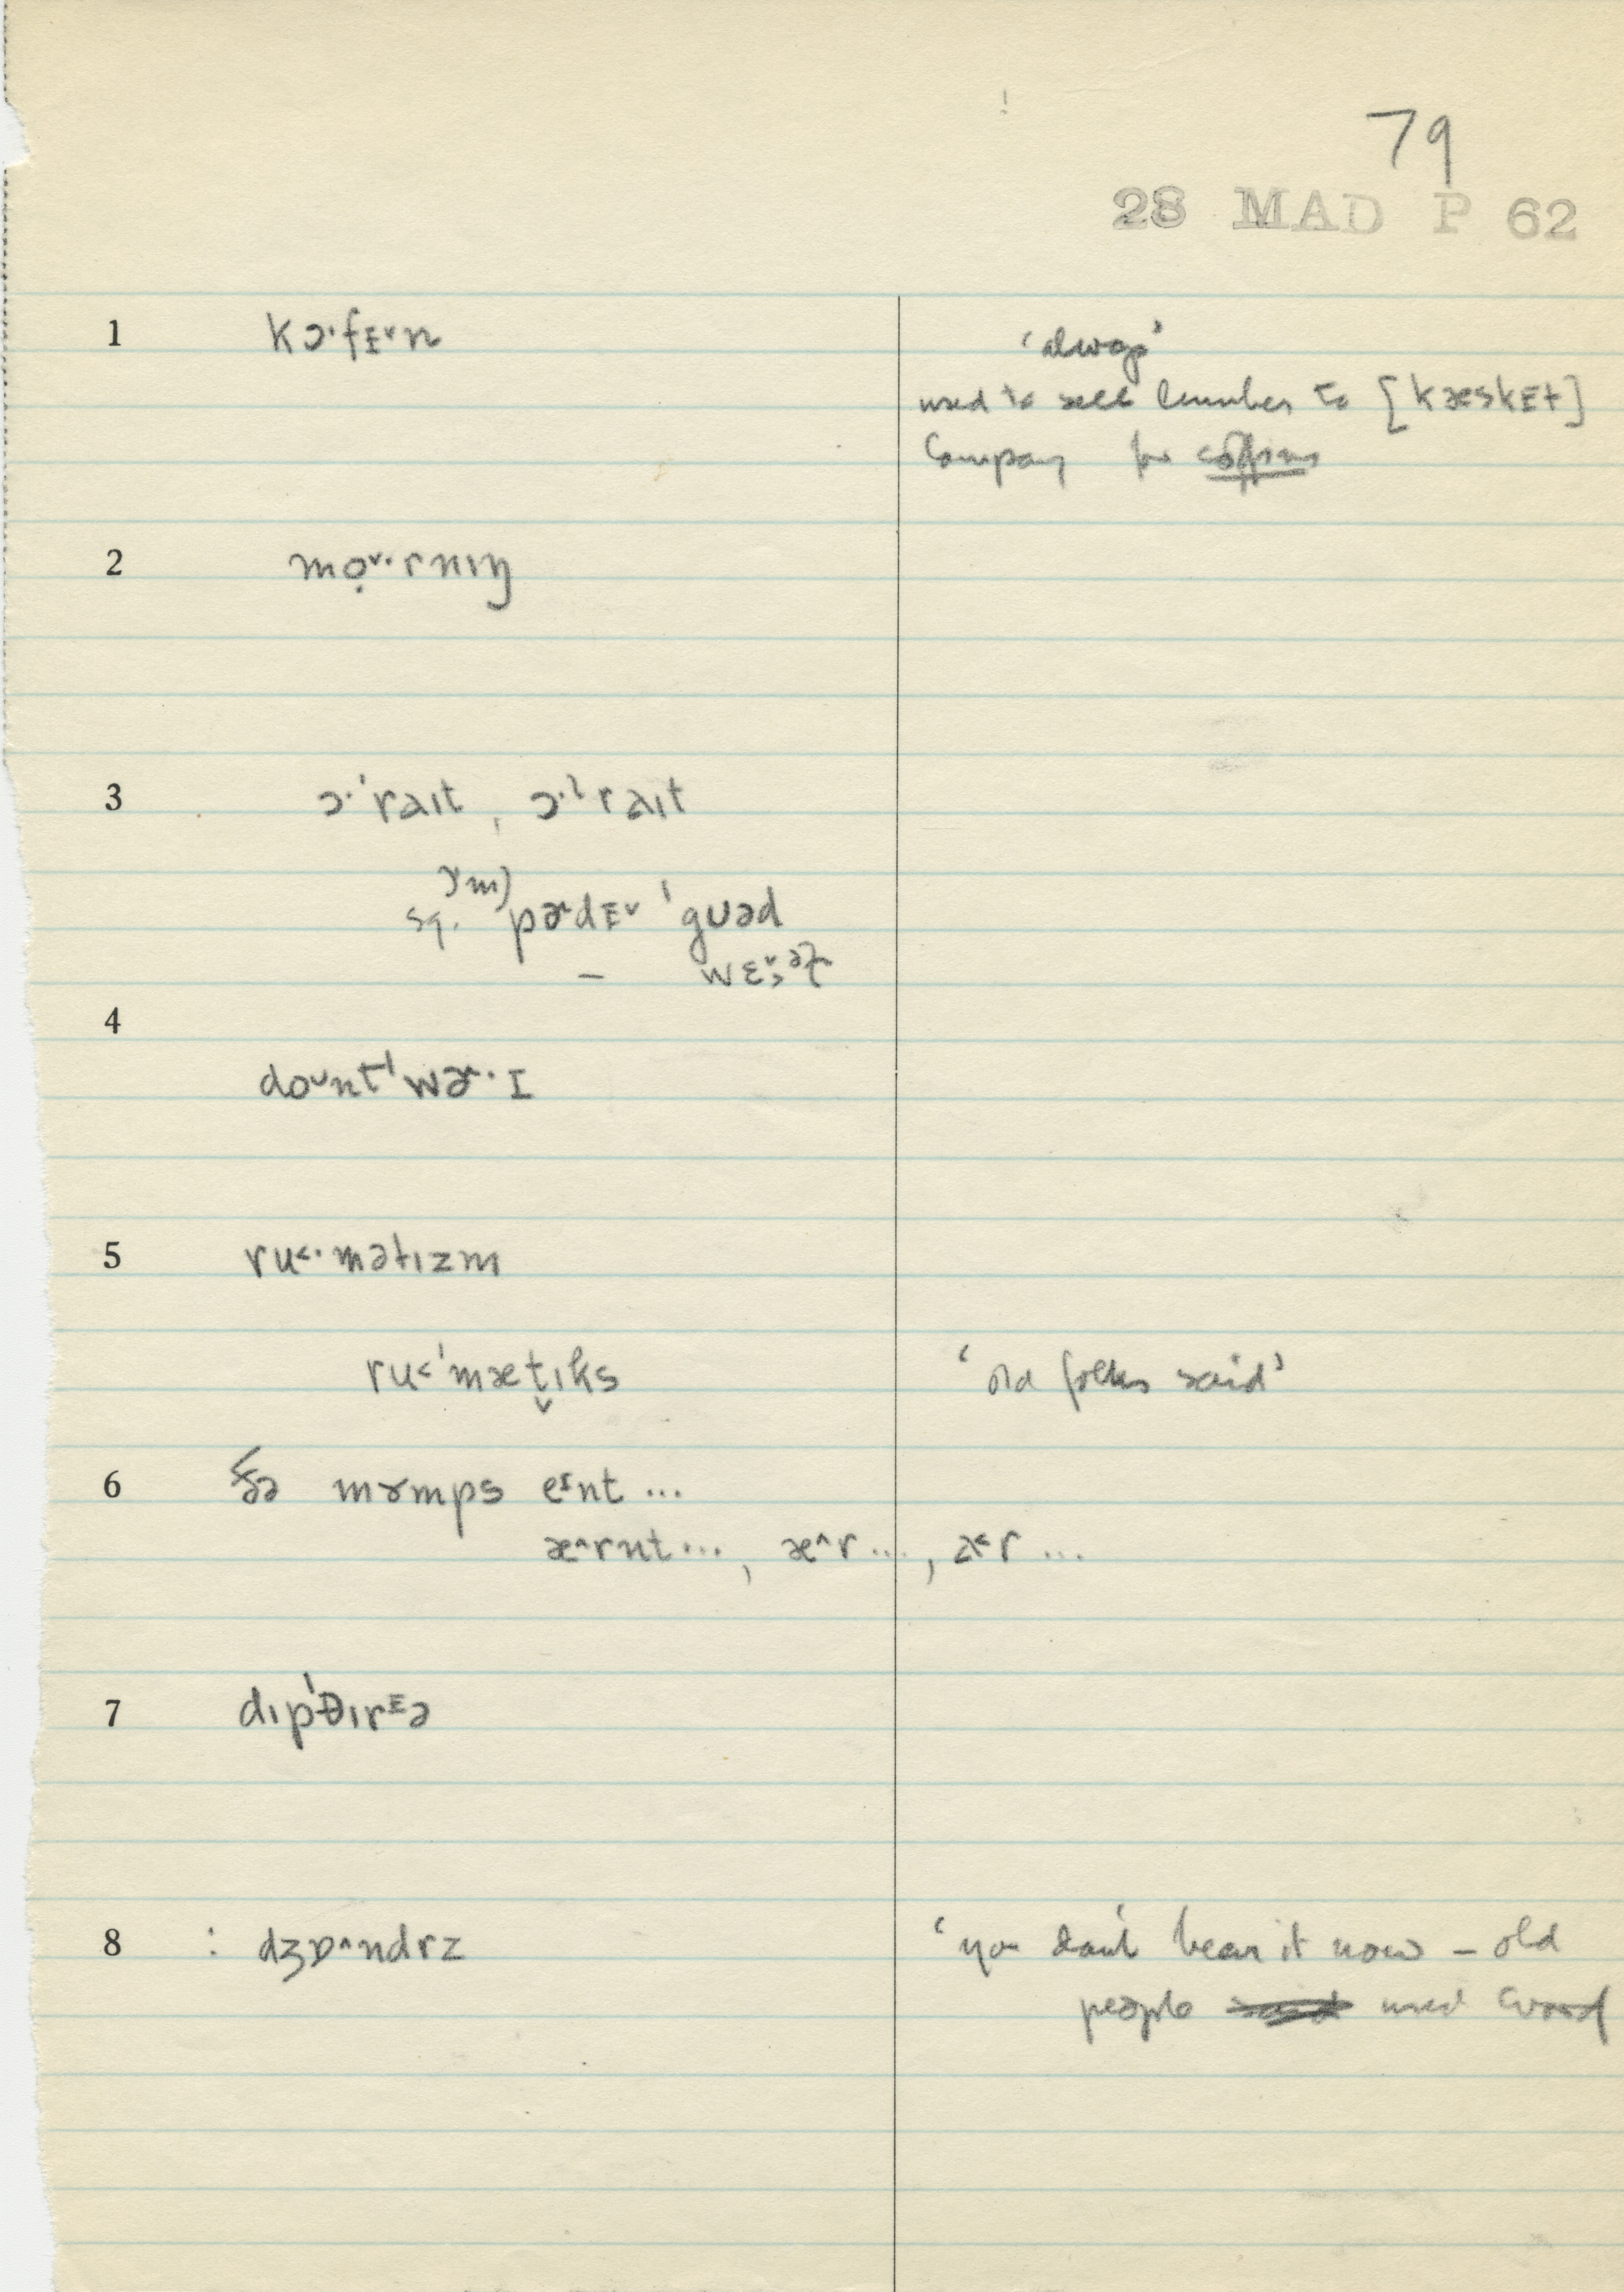 79
28 MAD P 62
1 kɔ·fᴇ˅n
'always'
used to sell lumber to [kæskᴇt]
Company for coffins
2 mọ˅·rnɪŋ
3 ɔ·ˈraɪt, ɔ·lˈraɪt
ɤm)
sq. pɚdᴇ˅ ˈgʊəd
–
4
doᴜntˈwɚ·ɪ
5 ru˂·mətɪzm
ru˂ˈmæt̬ɪks 'old folks said'
6 ðə mɤmps eᶦnt ...
æ^rnt ..., æ^r ..., a˂r ...
7 dɪpˈθɪrᴇə
8 : dʒɒ^ndrz 'you don't hear it now – old
people used word